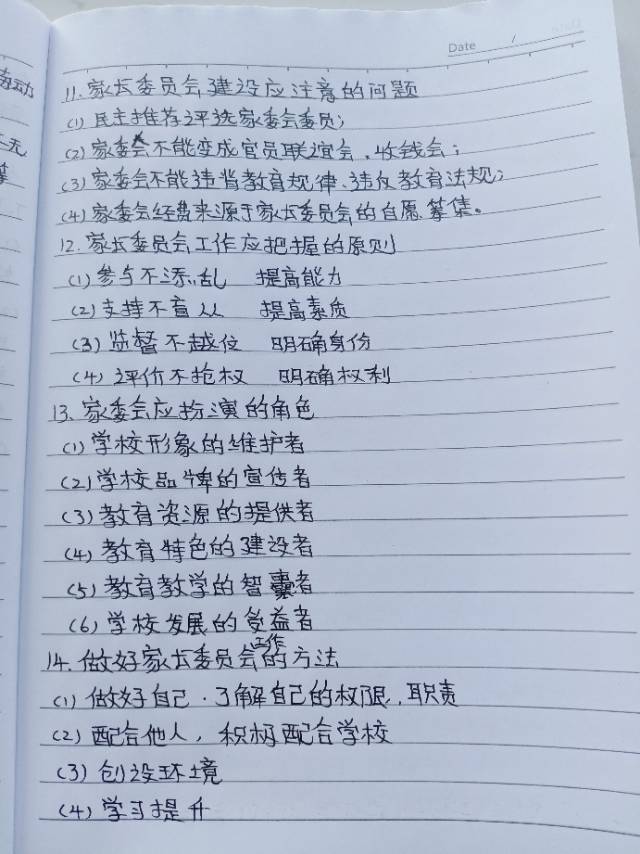 Date /
11. 家长委员会建设应注意的问题
(1) 民主推荐评选家委会委员;
(2) 家委会不能变成官员联谊会、收钱会;
(3) 家委会不能违背教育规律、违反教育法规;
(4) 家委会经费来源于家长委员会的自愿筹集。
12. 家长委员会工作应把握的原则
(1) 参与不添乱 提高能力
(2) 支持不盲从 提高素质
(3) 监督不越位 明确身份
(4) 评价不抢权 明确权利
13. 家委会应扮演的角色
(1) 学校形象的维护者
(2) 学校品牌的宣传者
(3) 教育资源的提供者
(4) 教育特色的建设者
(5) 教育教学的智囊者
(6) 学校发展的受益者
14. 做好家长委员会工作的方法
(1) 做好自己·了解自己的权限、职责
(2) 配合他人，积极配合学校
(3) 创设环境
(4) 学习提升